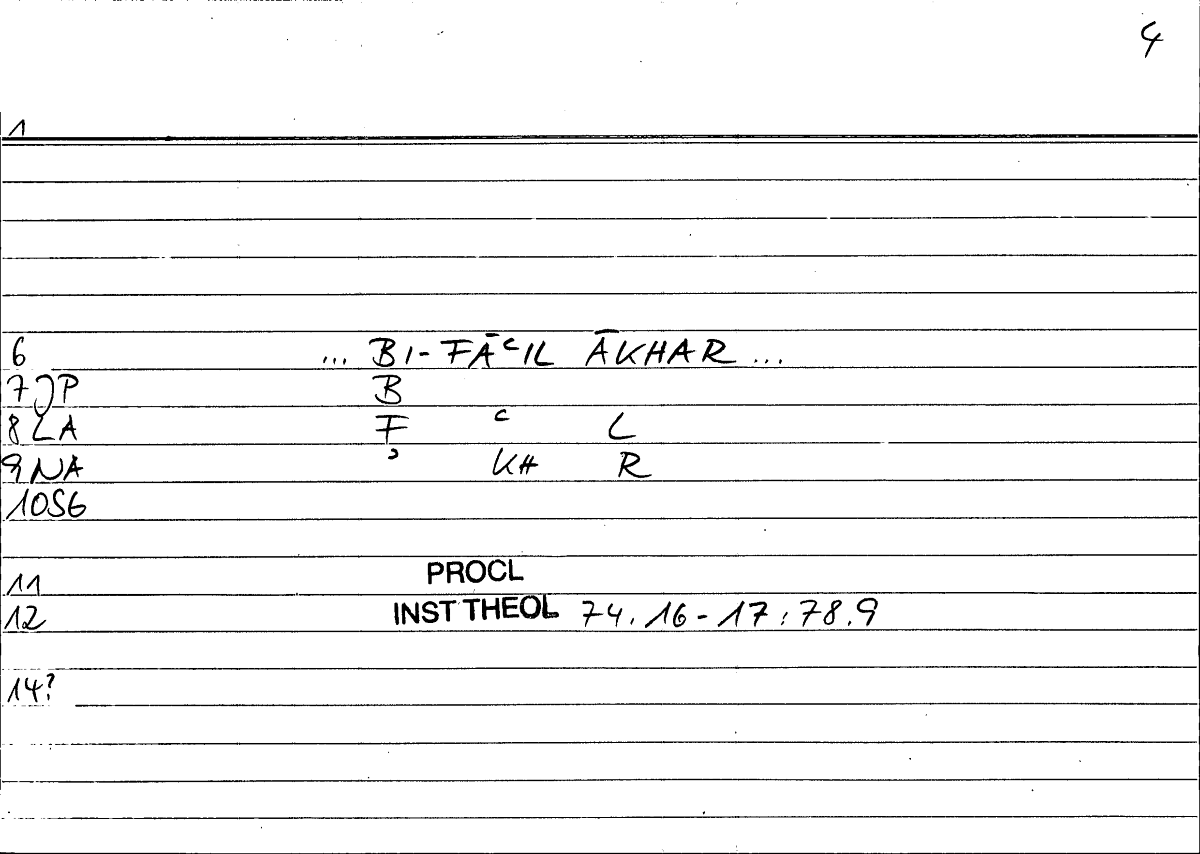 4
1
6 ... BI-FĀʿIL ĀKHAR ...
7 JP B
8 LA F ʿ L
9 NA ʾ KH R
10SG
11 PROCL
12 INST THEOL 74.16-17:78.9
14?